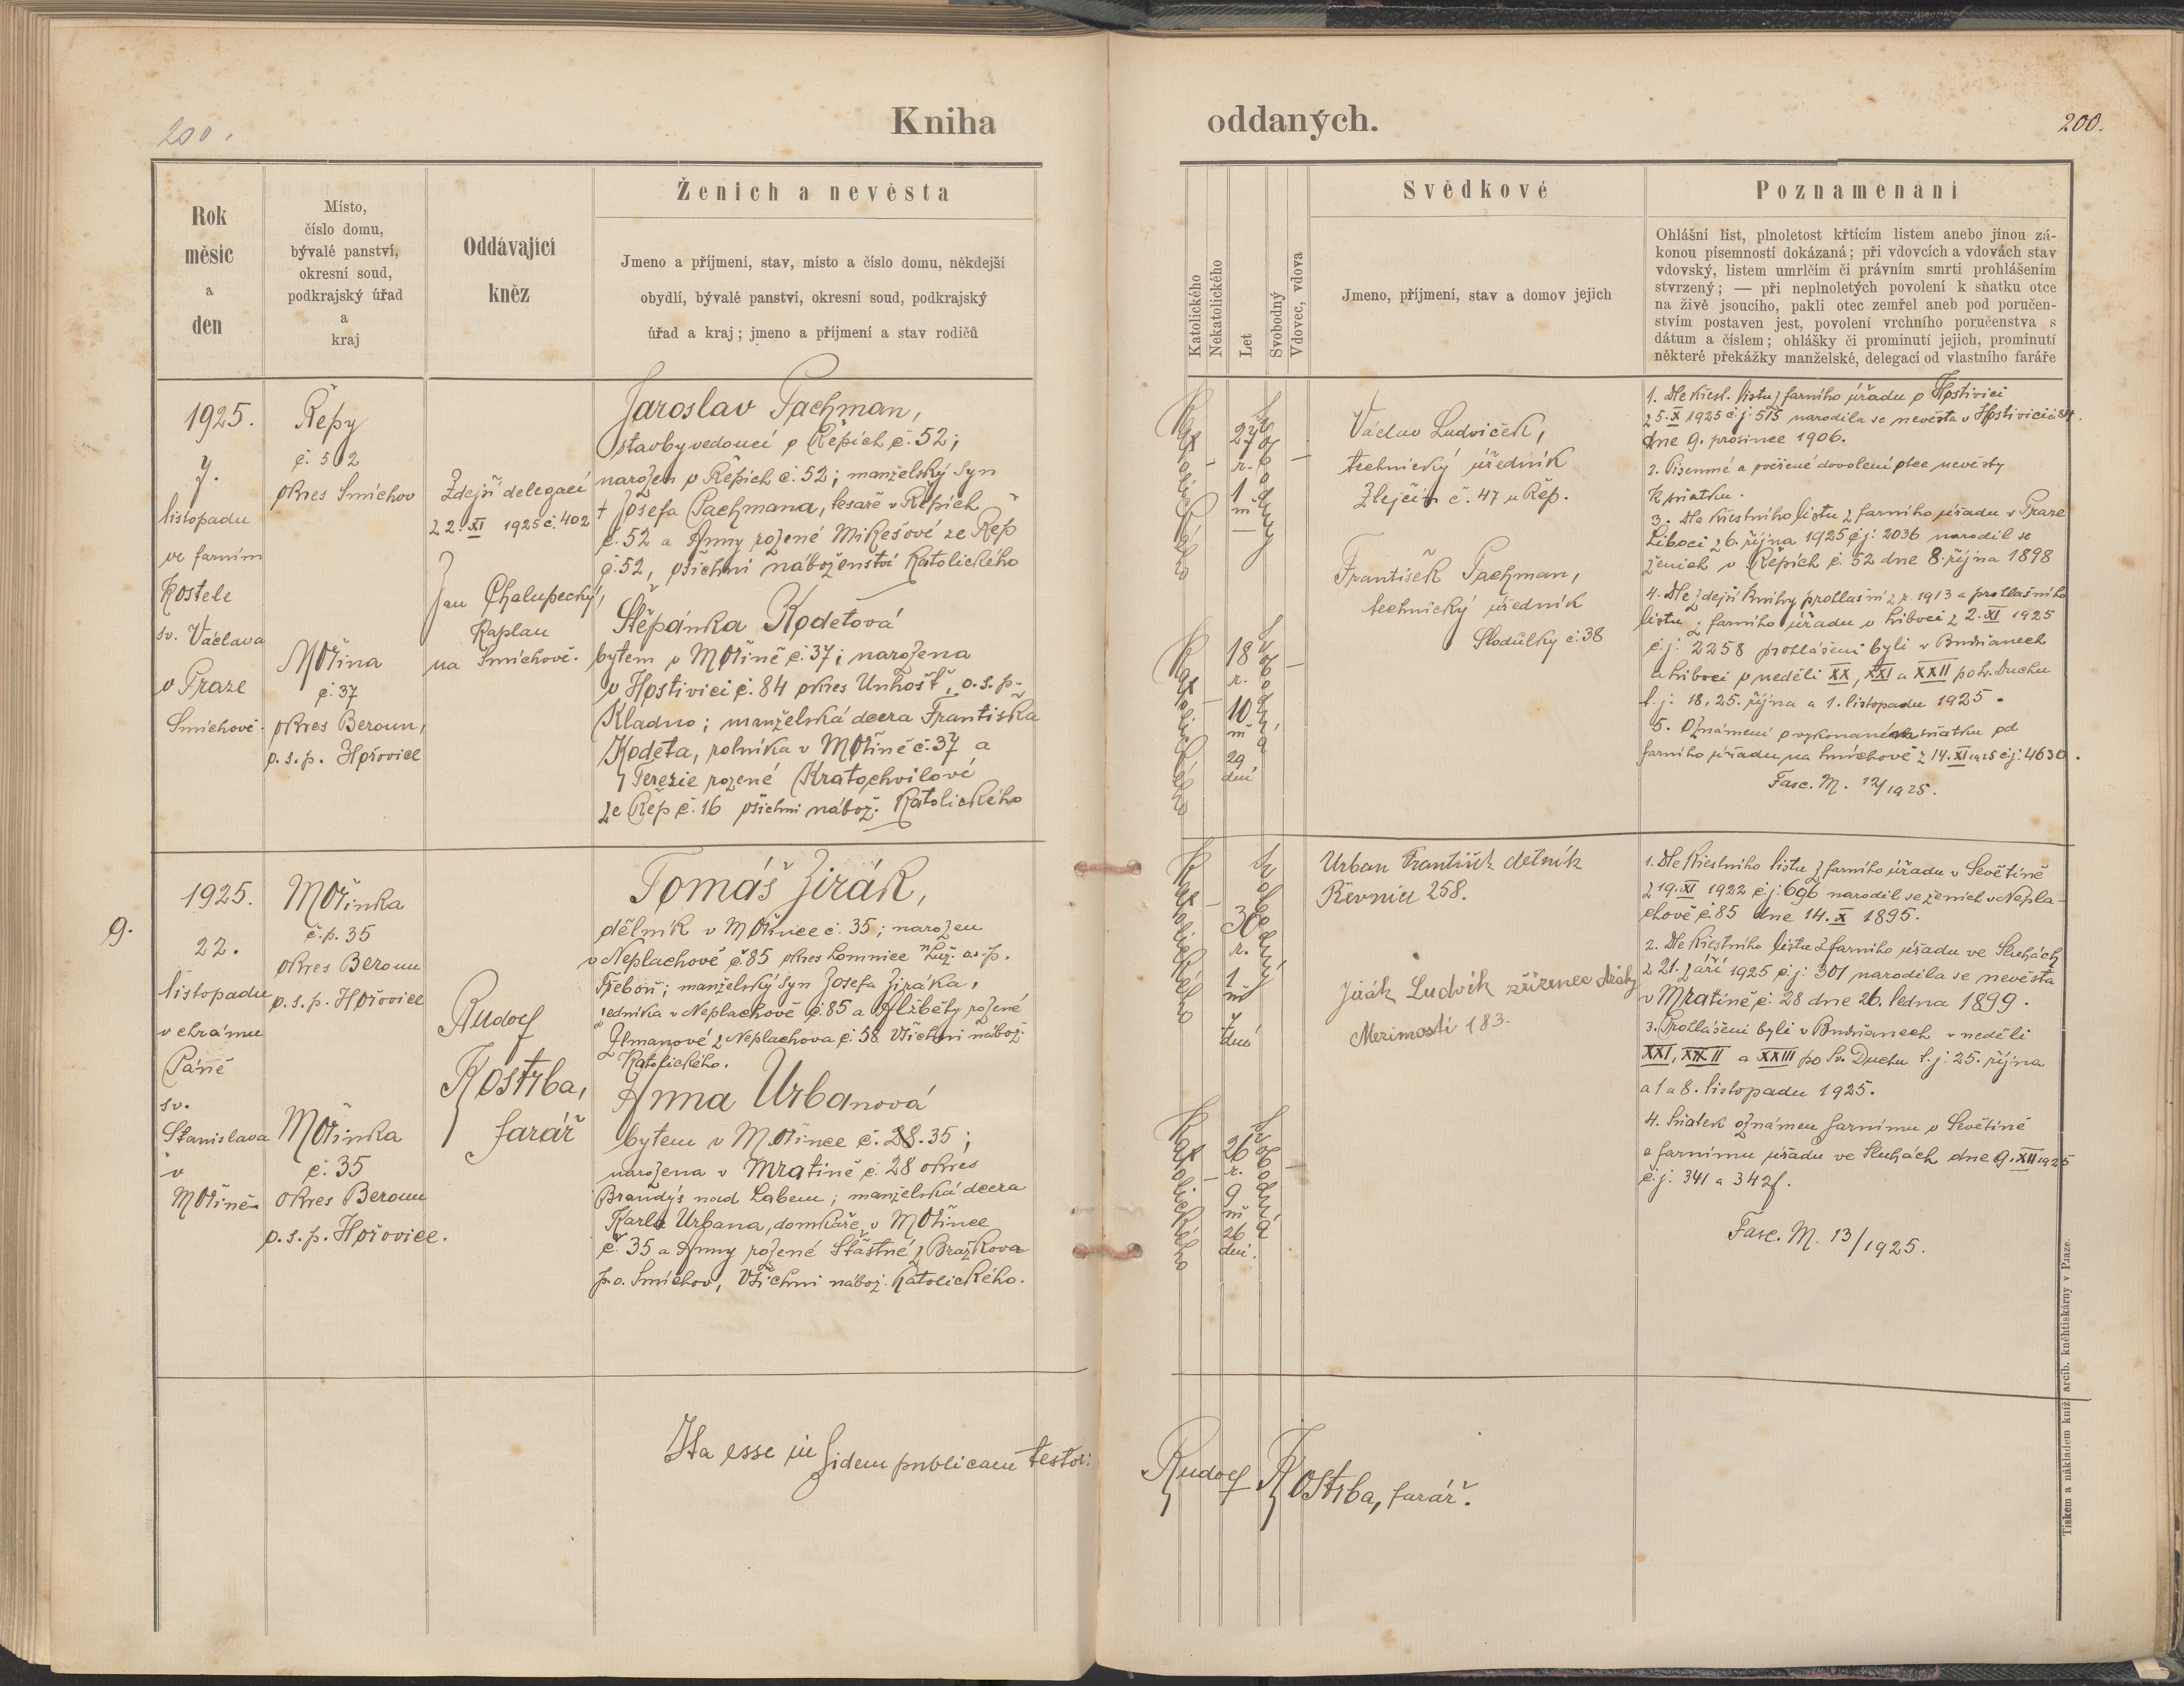 200.
Kniha
Rok
měsíc
a
den
Místo,
číslo domu,
bývalé panství,
okresní soud,
podkrajský úřad
a
kraj
Oddávající
kněz
Ženich a nevěsta
Jmeno a příjmení, stav, místo a číslo domu, někdejší
obydlí, bývalé panství, okresní soud, podkrajský
úřad a kraj; jmeno a příjmení a stav rodičů
1925.
7.
listopadu
ve farním
Kostele
sv. Václava
v Praze
Smíchově.
Řepy
č. 52
okres Smíchov
Mořina
č. 37
okres Beroun,
p. s. p. Hořovice
Zdejší delegací
z 2. XI 1925 č. 402
Jan Chalupecký,
Kaplan
na Smíchově.
Jaroslav Pachman,
stavbyvedoucí v Řepích č. 52;
narozen v Řepích č. 52; manželský syn
† Josefa Pachmana, tesaře v Řepích
č. 52 a Anny rozené Mikešové ze Řep
č. 52, všichni náboženství Katolického
Štěpánka Kodetová
bytem v Mořině č. 37; narozena
v Hostivici č. 84 okres Unhošť, o. s. p.
Kladno; manželská dcera Františka
Kodeta, rolníka v Mořině č. 37 a
Terezie rozené Kratochvilové
ze Řep č. 16 všichni nábož. Katolického
9.
1925.
22.
listopadu
v chrámu
Páně
sv.
Stanislava
v
Mořině
Mořinka
č. p. 35
okres Beroun
p. s. p. Hořovice
Mořinka
č. 35
okres Beroun
p. s. p. Hořovice.
Rudolf
Kostrba,
farář
Tomáš Jirák,
dělník v Mořince č. 35; narozen
v Neplachově č 85 okres Lomnice n Luž. o. s. p.
Třeboň; manželský syn Josefa Jiráka,
zedníka v Neplachově č. 85 a Alžběty rozené
Ilmanové z Neplachova č. 58 Všichni nábož.
Katolického.
Anna Urbanová
bytem v Mořince č. 28. 35;
narozena v Mratíně č. 28 okres
Brandýs nad Labem; manželská dcera
Karla Urbana, domkáře v Mořince
č. 35 a Anny rozené Šťastné z Braškova
p. o. Smíchov, Všichni nábož. Katolického.
Ita esse in fidem publicam testor:
oddaných.
200.
Katolického
Nekatolického
Let
Svobodný
Vdovec, vdova
Svědkové
Jmeno, příjmení, stav a domov jejich
Poznamenání
Ohlášní list, plnoletost křtícím listem anebo jinou zá-
konou písemností dokázaná; při vdovcích a vdovách stav
vdovský, listem umrlčím či právním smrti prohlášením
stvrzený; — při neplnoletých povolení k sňatku otce
na živě jsoucího, pakli otec zemřel aneb pod poručen-
stvím postaven jest, povolení vrchního poručenstva s
dátum a číslem; ohlášky či prominutí jejich, prominutí
některé překážky manželské, delegací od vlastního faráře
Katolického
–
27
r.
1
m
—
Svobodný
–
Václav Ludvíček,
technický úředník
Zličín č. 47 u Řep.
František Pachman,
technický úředník
Stodůlky č. 38
Katolického
–
18
r.
10
m
29
dní
Svobodná
–
1. Dle křest. listu z farního úřadu v Hostivici
z 5. X 1925 č. j. 515 narodila se nevěsta v Hostivici č 84.
dne 9. prosince 1906.
2. Písemné a ověřené dovolení otce nevěsty
k sňatku.
3. Dle křestního listu z farního úřadu v Praze
Liboci z 6. října 1925 č j. 2036 narodil se
ženich v Řepích č. 52 dne 8. října 1898
4. Dle zdejší knihy prohlašní z r. 1913 a prohlašního
listu z farního úřadu v Liboci z 2. XI 1925
č. j. 2258 prohlášeni byli v Budňanech
a Liboci v neděli XX, XXI a XXII po sv. Duchu
t. j. 18, 25. října a 1. listopadu 1925.
5. Oznámení o vykonaném sňatku od
farního úřadu na Smíchově z 14. XI 1925 č. j. 4630.
Fasc. M. 12/1925.
Katolického
–
30
r.
1
m
7
dní
Svobodný
Urban František dělník
Řevnice 258.
Jirák Ludvík zřízenec dráhy
Mezimostí 183.
Katolického
–
26
r.
9
m
26
dní.
Svobodná
–
1. Dle křestního listu z farního úřadu v Ševětíně
z 19. XI 1922 č. j. 696 narodil se ženich v Nepla-
chově č. 85 dne 14. X 1895.
2. Dle křestního listu z farního úřadu ve Sluhách
z 21. září 1925 č. j. 301 narodila se nevěsta
v Mratíně č. 28 dne 26. ledna 1899.
3. Prohlášeni byli v Budňanech v neděli
XXI, XXII a XXIII po Sv. Duchu t. j. 25. října
a 1 a 8. listopadu 1925.
4. Sňatek oznámen farnímu v Ševětíně
a farnímu úřadu ve Sluhách dne 9. XII 1925
č. j. 341 a 342.
Fasc. M. 13/1925.
Rudolf Kostrba, farář.
Tiskem a nákladem kníž. arcib. knihtiskárny v Praze.